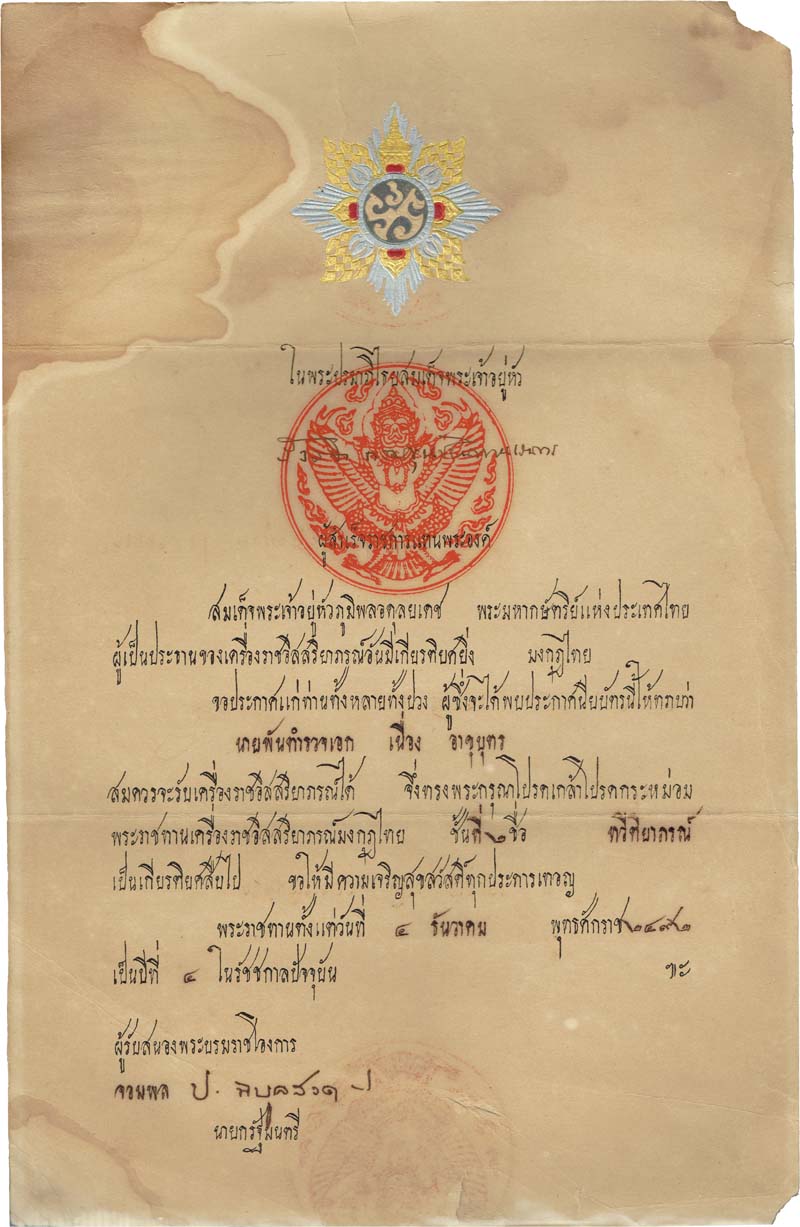 ในพระปรมาภิไธยสมเด็จพระเจ้าอยู่หัว
ผู้สำเร็จราชการแทนพระองค์
สมเด็จพระเจ้าอยู่หัวภูมิพลอดุลยเดช พระมหากษัตริย์แห่งประเทศไทย
ผู้เป็นประธานของเครื่องราชอิสสริยาภรณ์อันมีเกียรติยศยิ่ง มงกุฎไทย
ขอประกาศแก่ท่านทั้งหลายทั้งปวง ผู้ซึ่งจะได้พบประกาศนียบัตรนี้ให้ทราบว่า
นายพันตำรวจเอก เนื่อง อาขุบุตร
สมควรจะรับเครื่องราชอิสสริยาภรณ์ได้ จึ่งทรงพระกรุณาโปรดเกล้าโปรดกระหม่อม
พระราชทานเครื่องราชอิสสริยาภรณ์มงกุฎไทย ชั้นที่ ๒ ชื่อ ทวีติยาภรณ์
เป็นเกียรติยศสืบไป ขอให้มีความเจริญสุขสวัสดิ์ทุกประการเทอญ
พระราชทานตั้งแต่วันที่ ๔ ธันวาคม พุทธศักราช ๒๔๙๒
เป็นปีที่ ๔ ในรัชชกาลปัจจุบัน ฯะ
ผู้รับสนองพระบรมราชโองการ
จอมพล ป. พิบูลสงคราม
นายกรัฐมนตรี